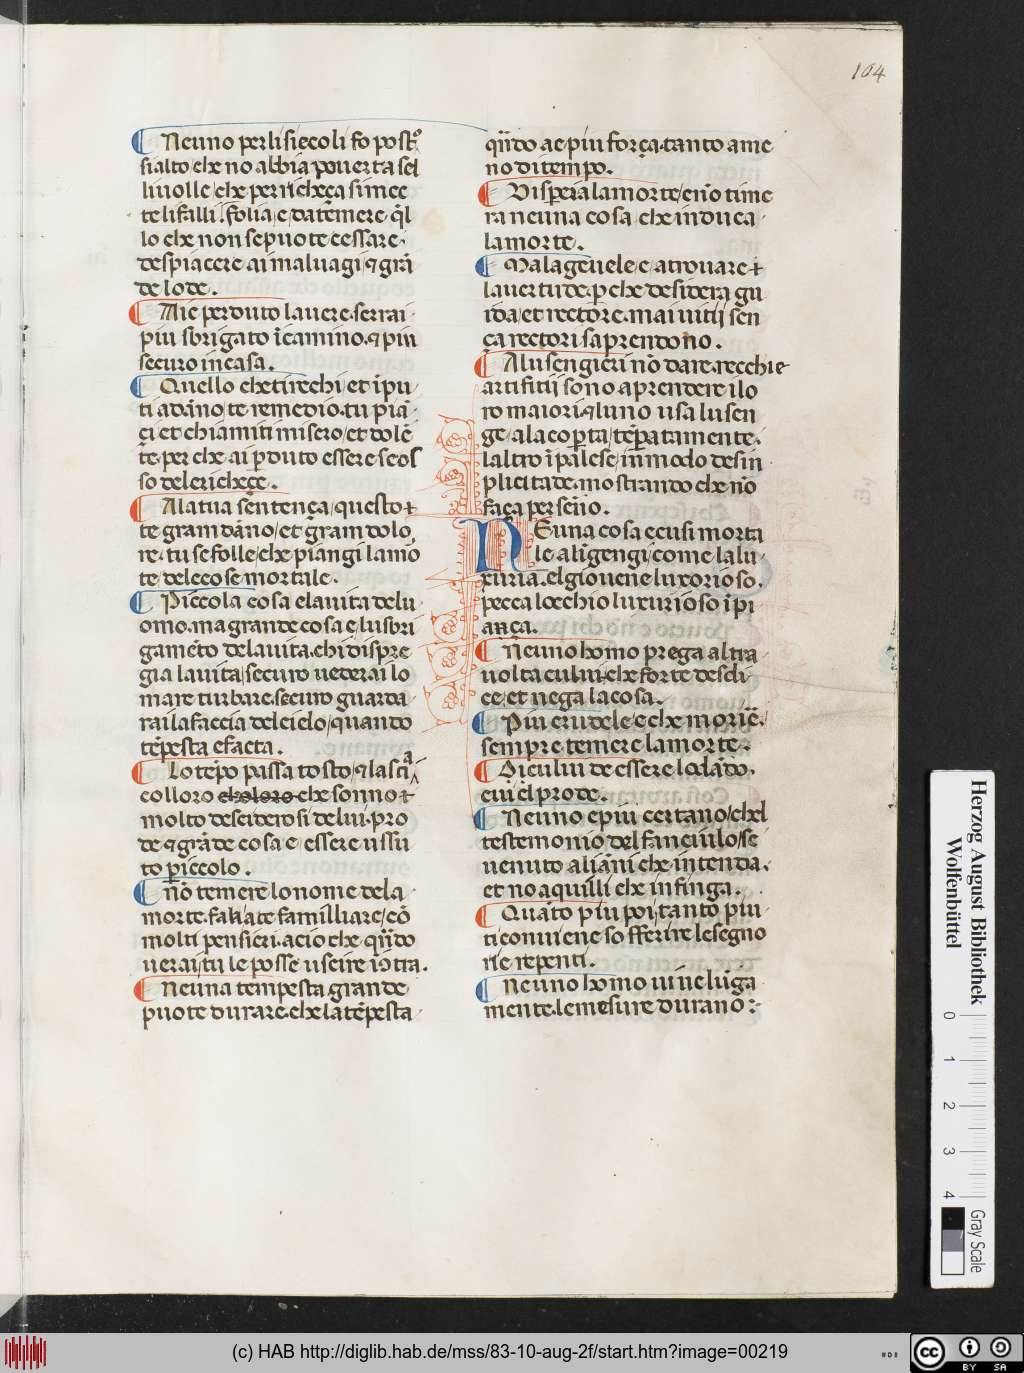 104
Neuno per li siecoli fo posto
si alto che no abbia pouerta se l
li uolle che per richeça si mec
te li falli. folia e da temere q̃l
lo che non se puote cessare
despiacere ai maluagi ⁊ grã
de lode.
Ai perduto lauere. serrai
piu sbrigato ĩ camino. ⁊ piu
securo in casa.
Quello che ti rechi et ĩpu
ti a dãno te remedio. tu piã
çi et chiamiti misero et dolẽ
te. per che ai p̃duto essere seos
so del richeçe.
Ala tua sẽntença questo e
te gram dãno et gram dolo
re. tu se folle che piangi lamo
te dele cose mortale.
Piccola cosa e lauita delu
omo. ma grande cosa e lu sbri
gamẽto dela uita. chi dispre
gia lauita securo uedera i lo
mare turbare. securo guarda
rai la faccia del cielo quando
tẽpesta e facta.
Lo tẽpo passa tosto ⁊ lascia
colloro che loro che sonno e
molto desiderosi de lui. pro
de ⁊ grãde cosa e essere ussu
to piccolo.
nõ temere lo nome dela
morte. fallate familliare cõ
molti pensieri. acio che qñdo
uerai tu le posse uscire ĩ cõtra.
Neuna tempesta grande
puote durare. che la tẽpesta
qñdo ae piu força. tanto a me
no di tempo.
Dispera la morte e nõ time
ra neuna cosa che induca
la morte.
Malageuele e a trouare e
la uertude. p che desidera gu
ida et rectore. mai uitii sen
ça rectori saprendono.
A lusengieri nõ dare recchie
artifitii sono a prendere i lo
ro maiori. q̃luno usa lusen
ge. a la cop̃ta tẽperatamente.
laltro ĩ palese in modo de sin
plicitade. mostrando che nõ
faça per senno.
Neuna cosa e cusi morta
le a lĩgengi come la lu
xuria. el giouene luxorioso.
pecca lo cchio luxurioso ĩ pi
ança.
Neuno homo prega altra
uolta cului che forte desdi
ce et nega la cosa.
Piu crudele e che morire.
sempre temere la morte.
Di cului de essere lodãdo.
cui el prode.
Neuno e piu certano che l
testemonio del fanciulo se
uenuto ali ãni che intenda.
et no a quilli che infinga.
Quãto piu poi tanto piu
ti conuiene sofferire le segno
rie repenti.
Neuno homo uiue lũga
mente. le mesure durano
Herzog August Bibliothek
Wolfenbüttel
0 1 2 3 4
Gray Scale
(c) HAB http://diglib.hab.de/mss/83-10-aug-2f/start.htm?image=00219
cc BY SA